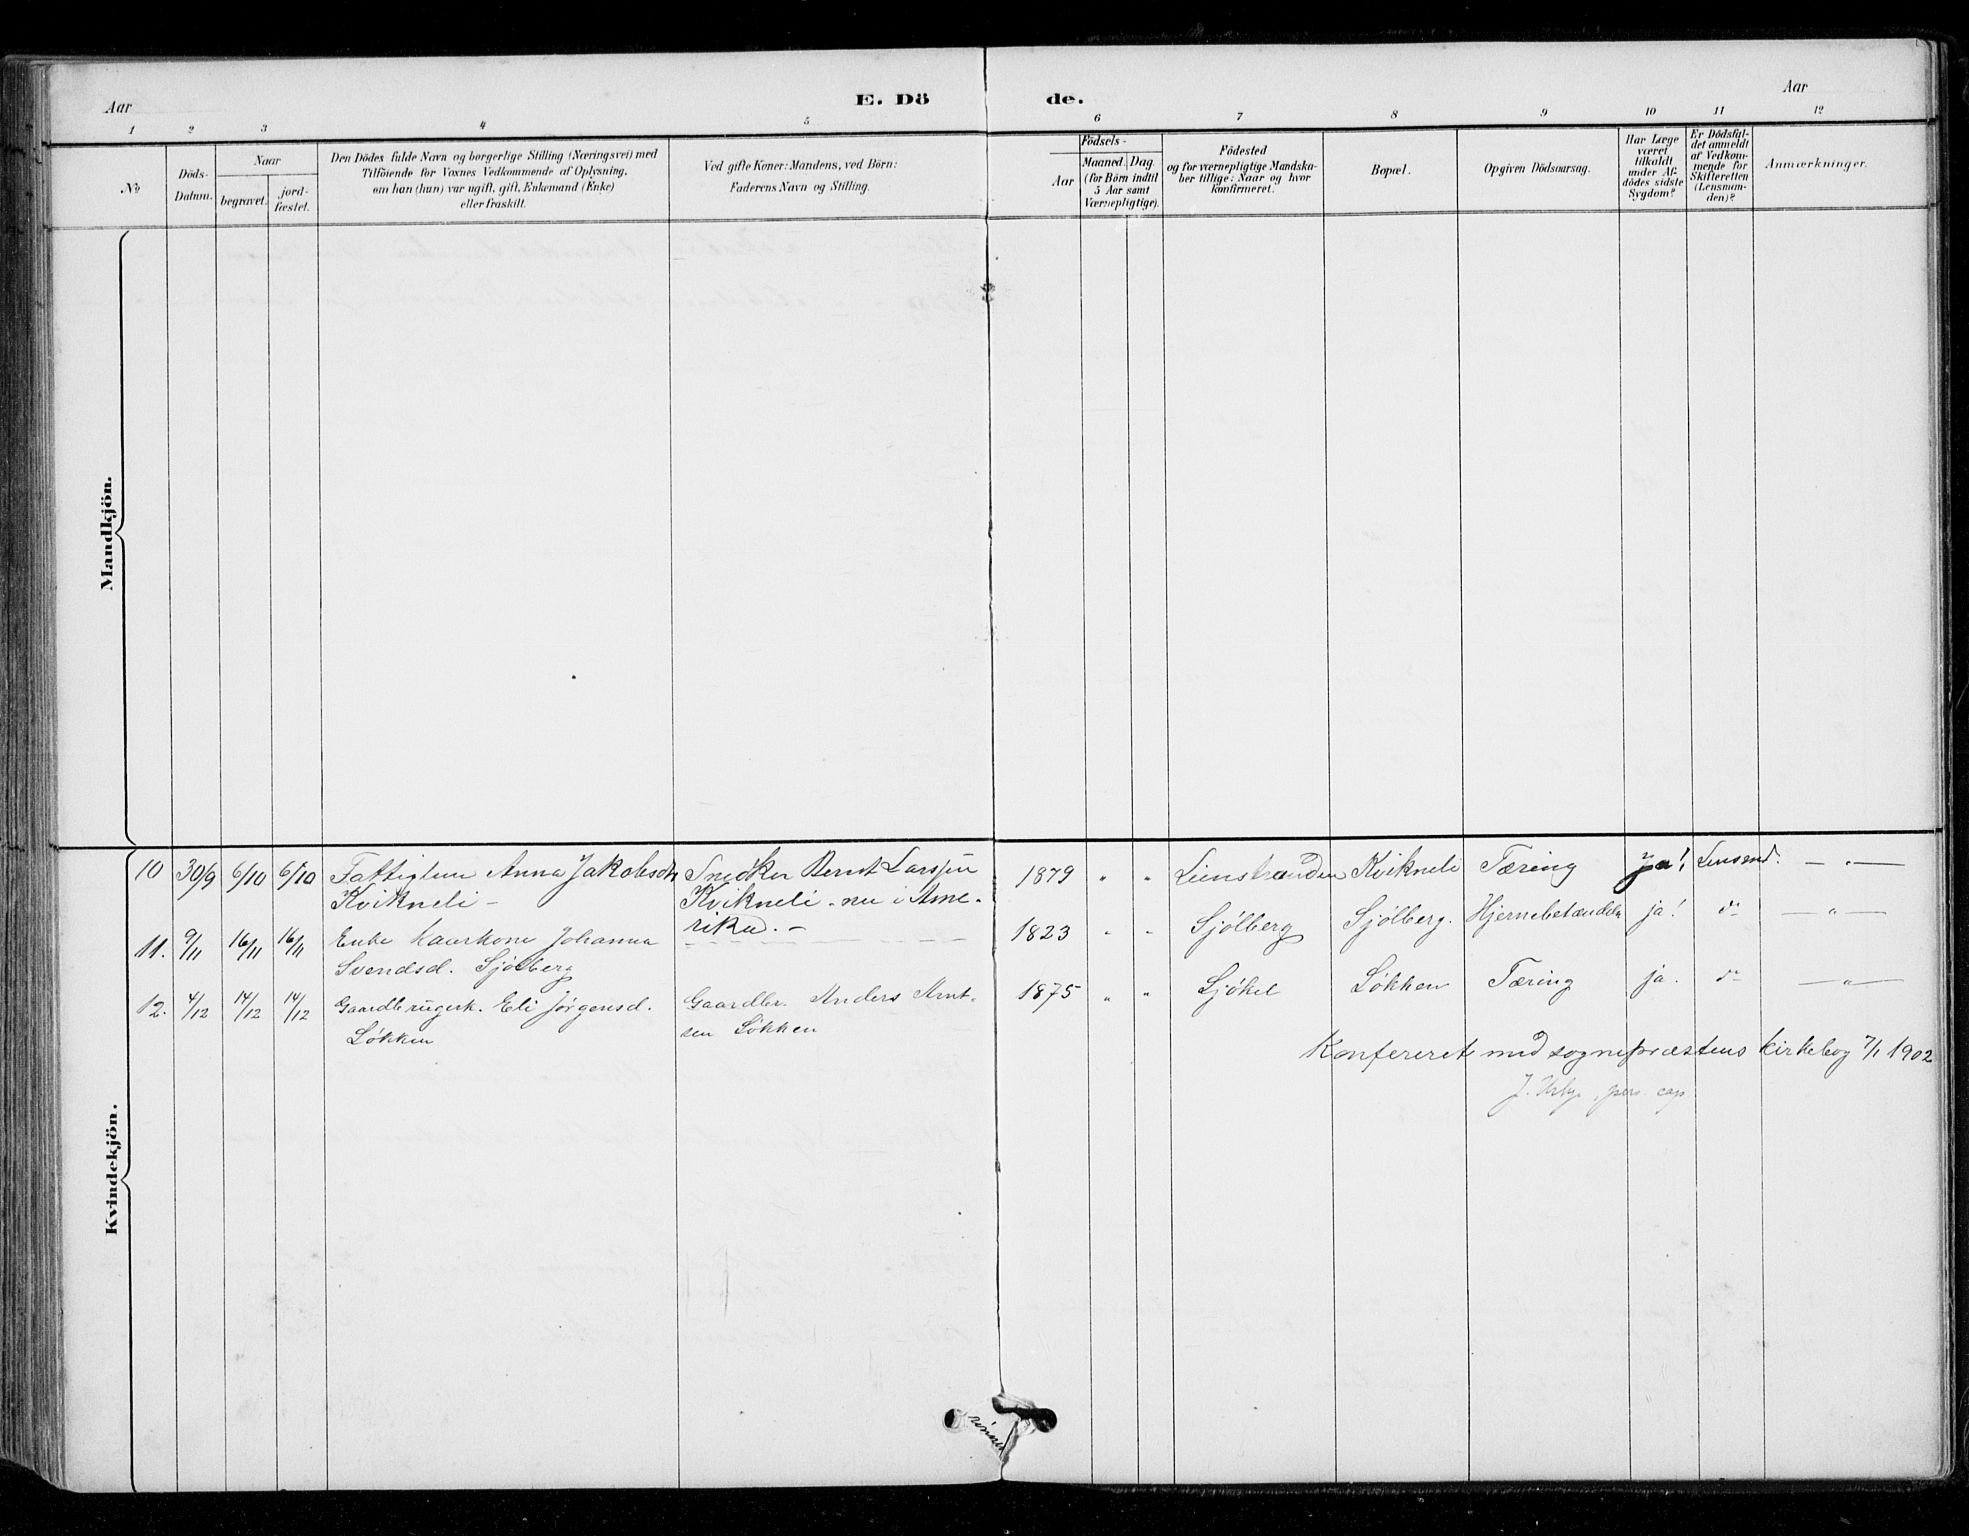 Aar
E. Dö
de.
Aar
1 2 3 4 5 6 7 8 9 10 11 12
No
Döds-
Datum.
Naar
begravet.
jord-
fæstet.
Den Dödes fulde Navn og borgerlige Stilling (Næringsvei) med
Tilföiende for Voxnes Vedkommende af Oplysning,
om han (hun) var ugift, gift, Enkemand (Enke)
eller fraskilt.
Ved gifte Koner: Mandens, ved Börn:
Faderens Navn og Stilling.
Födsels-
Aar
Maaned. Dag.
(for Börn indtil
5 Aar samt
Værnepligtige).
Födested
og for værnepligtige Mandska-
ber tillige: Naar og hvor
konfirmeret.
Bopæl.
Opgiven Dödsaarsag.
Har Læge
været
tilkaldt
under Af-
dödes sidste
Sygdom?
Er Dödsfal-
det anmeldt
af Vedkom-
mende for
Skifteretten
(Lensman-
den)?
Anmærkninger.
Mandkjön.
Kvindekjön.
10 30/9 6/10 6/10 Fattiglem Anna Jakobsd. Snedker Bernt Larssen 1879 " " Leinstranden Kvikneli Tæring ja! Lensmd. — " —
Kvikneli - Kvikneli - nu i Ame-
rika. -
11. 9/11 16/11 16/11 Enke Kaarkone Johanna — — — 1823 " " Sjölberg Sjölberg. Hjernebetændelse ja! do — " —
Svendsd. Sjölberg
12. 4/12 14/12 14/12 Gaardbrugerk. Eli Jørgensd. Gaardbr. Anders Arnt- 1875 " " Sjøkel Løkken Tæring ja. do — " —
Løkken sen Løkken
Konfereret med sognepræstens kirkebog 7/1 1902
J. pers. cap.